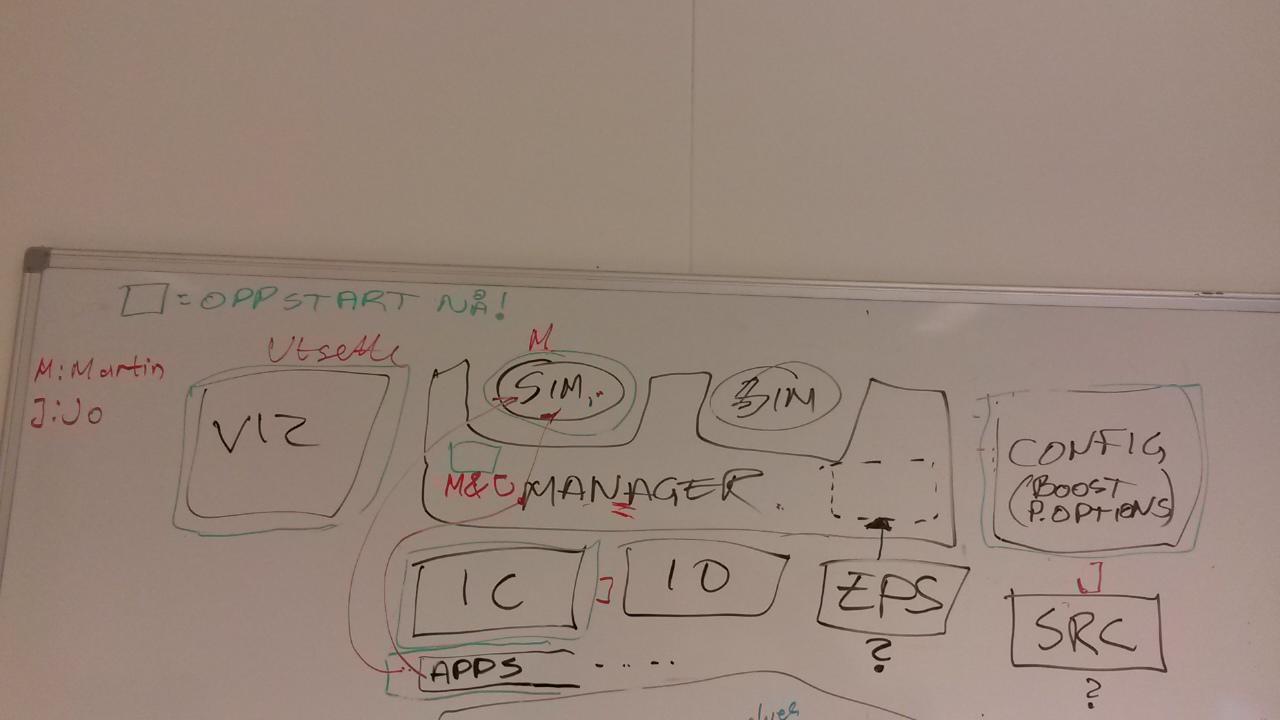 = OPPSTART NÅ!
M: Martin
J: JO
Utsette
VIZ
M
SIM
SIM
M&J
MANAGER
CONFIG
(BOOST
P.OPTIONS)
IC
J
IO
EPS
?
J
SRC
?
APPS .....